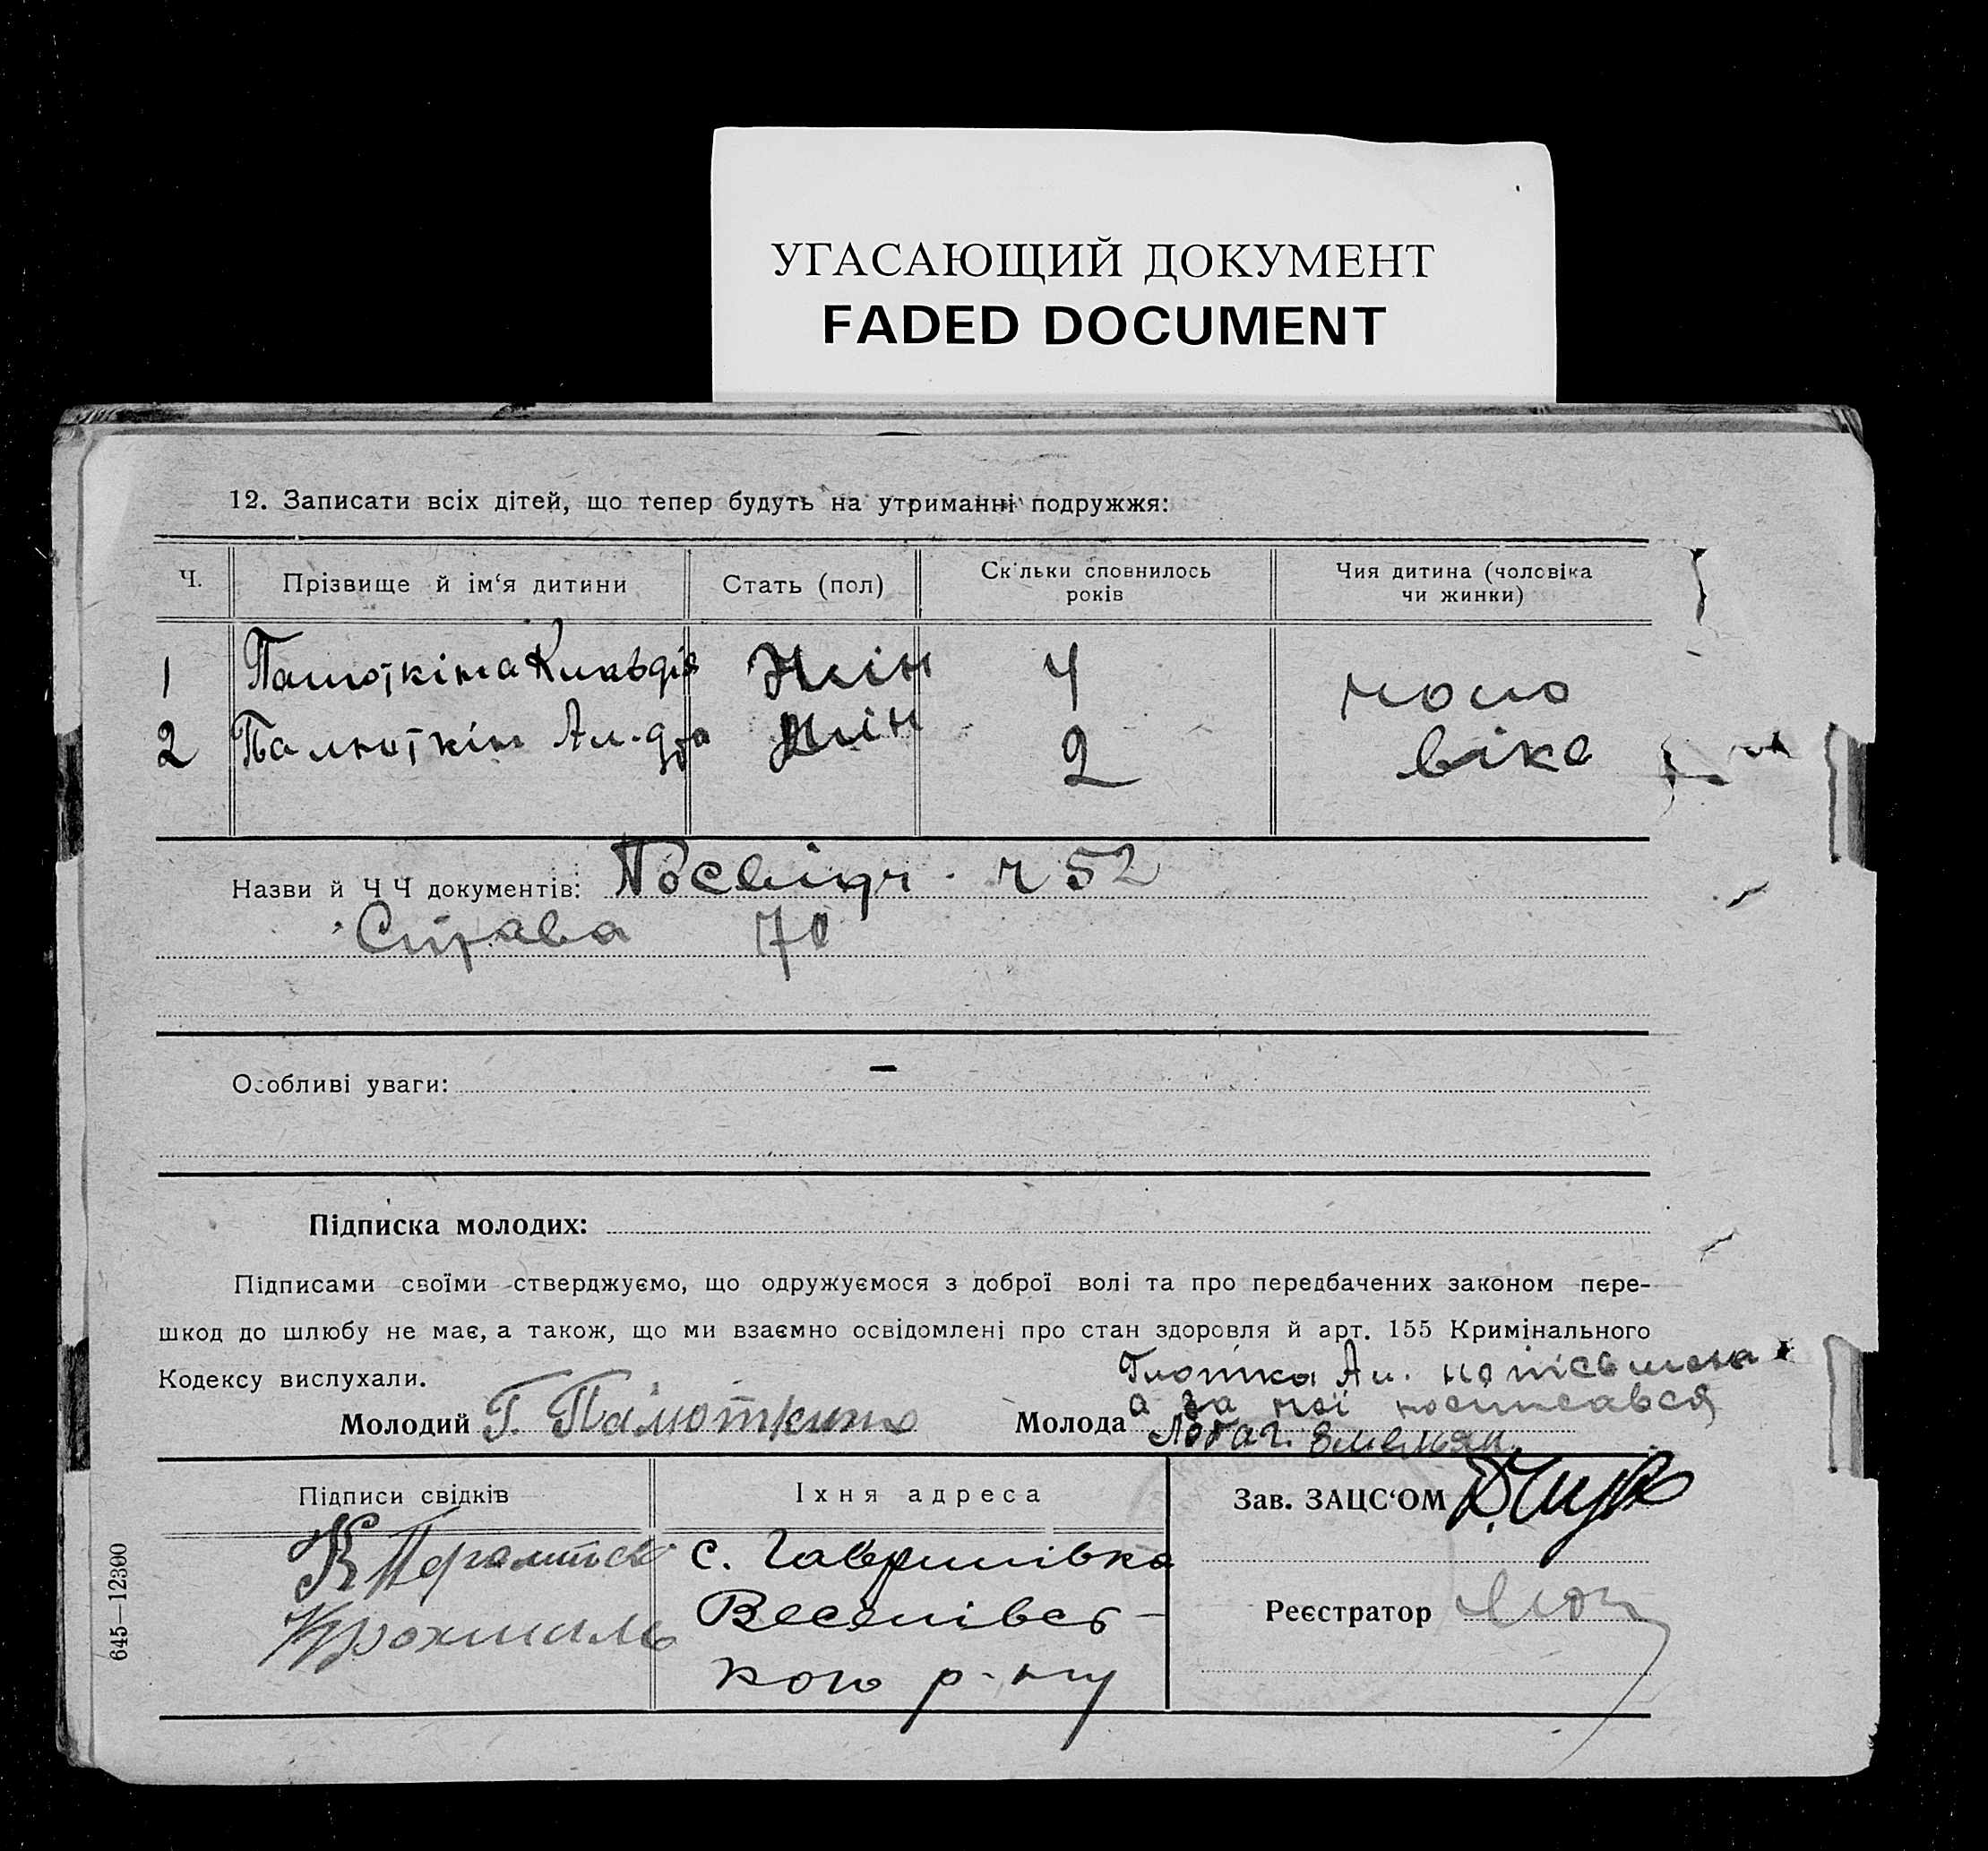 УГАСАЮЩИЙ ДОКУМЕНТ
FADED DOCUMENT
12. Записати всіх дітей, що тепер будуть на утриманні подружжя:
Ч. Прізвище й ім'я дитини Стать (пол) Скільки сповнилось років Чия дитина (чоловіка чи жинки)
1 жін 4 чоло
2 жін 2 віка
Назви й Ч Ч документів: Посвідч. ч 52
Справа 70
Особливі уваги: –
Підписка молодих:
Підписами своїми стверджуємо, що одружуємося з доброї волі та про передбачених законом пере-
шкод до шлюбу не має, а також, що ми взаємно освідомлені про стан здоровля й арт. 155 Кримінального
Кодексу вислухали.
Молодий Г. Молода а за неї
Підписи свідків Їхня адреса Зав. ЗАЦС'ОМ
с. Гаврилівка
Крохмаль Веселівсь-
кого р-ну
Реєстратор
645—12300